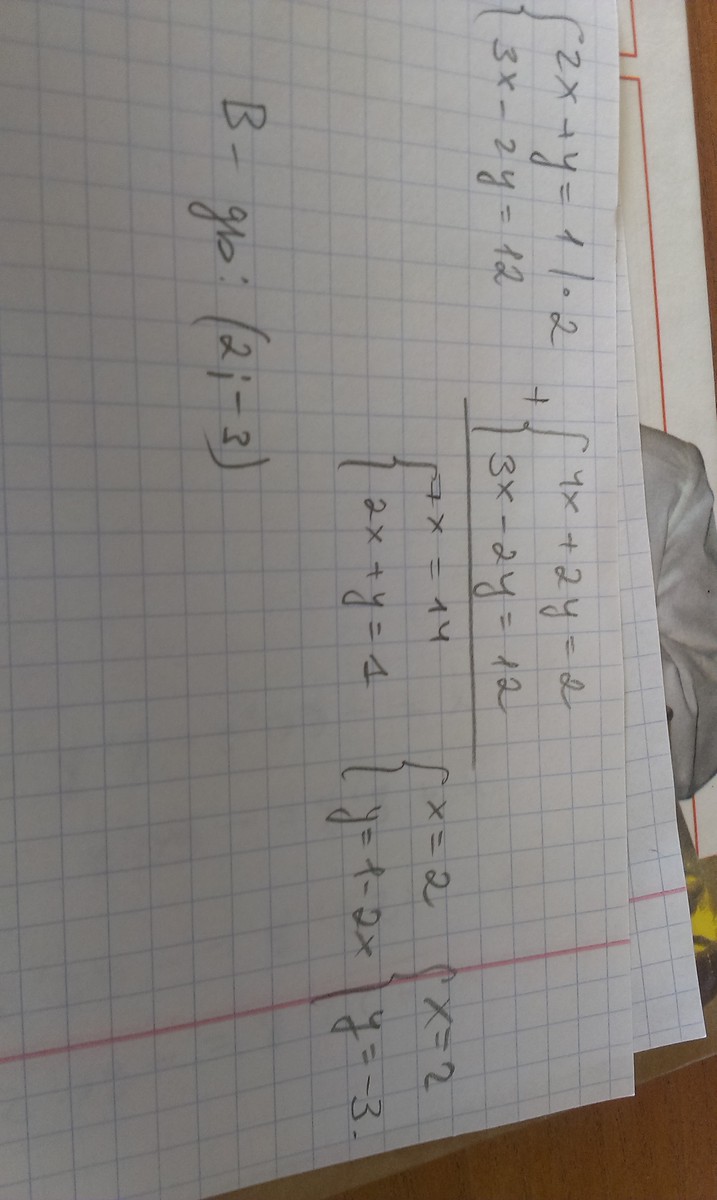 {2x + y = 1 | · 2
{3x - 2y = 12
+ {4x + 2y = 2
{3x - 2y = 12
{7x = 14
{2x + y = 1
{x = 2
{y = 1 - 2x
{x = 2
{y = -3.
В-дь: (2; -3)